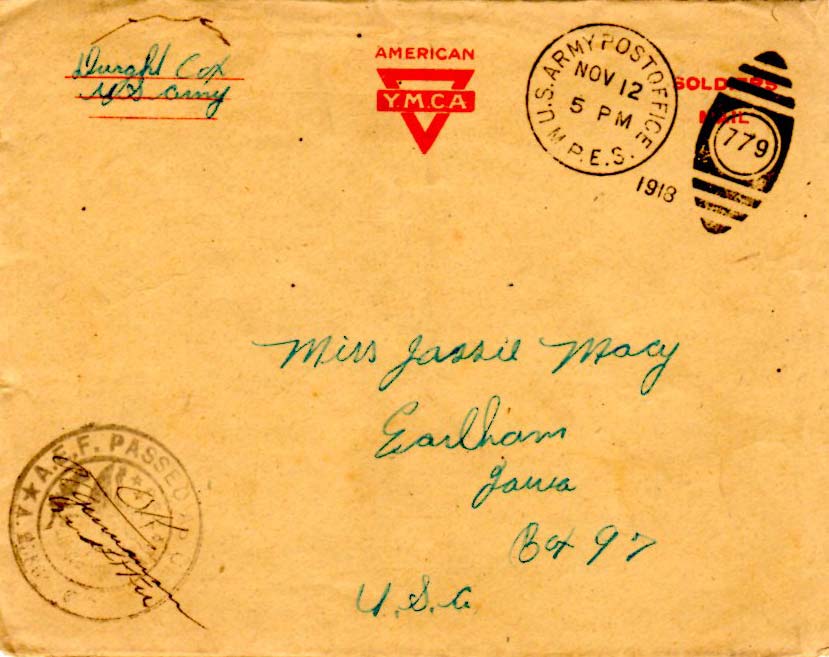 Dwight Cox
US Army
AMERICAN
Y.M.C.A
SOLDIERS
MAIL
U.S. ARMY POST OFFICE
M.P.E.S.
NOV 12
5 PM
1918
779
Miss Jassie Macy
Earlham
Iowa
Box 97
U.S.a
A.E.F. PASSED
OK